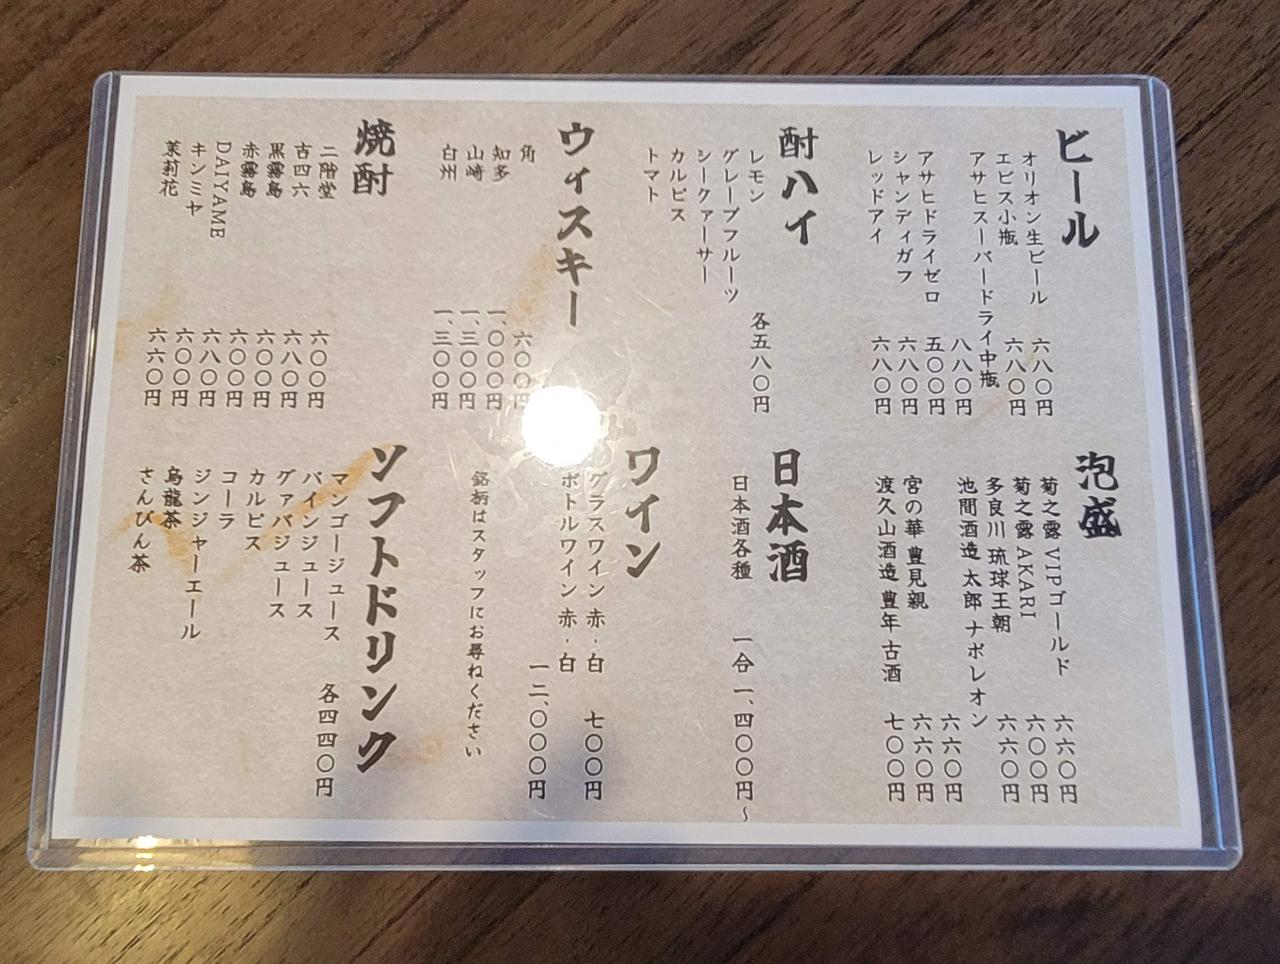 ビール
オリオン生ビール 六八〇円
エビス小瓶 六八〇円
アサヒスーパードライ中瓶 八八〇円
アサヒドライゼロ 五〇〇円
シャンディガフ 六八〇円
レッドアイ 六八〇円
酎ハイ
レモン 各五八〇円
グレープフルーツ
シークァーサー
カルピス
トマト
ウィスキー
角 六〇〇円
知多 一、〇〇〇円
山崎 一、三〇〇円
白州 一、三〇〇円
焼酎
二階堂 六〇〇円
吉四六 六八〇円
黒霧島 六〇〇円
赤霧島 六〇〇円
DAIYAME 六八〇円
キンミヤ 六〇〇円
茉莉花 六六〇円
泡盛
菊之露 VIPゴールド 六六〇円
菊之露 AKARI 六〇〇円
多良川 琉球王朝 六六〇円
池間酒造 太郎 ナポレオン 六六〇円
宮の華 豊見親 六六〇円
渡久山酒造 豊年 古酒 七〇〇円
日本酒
日本酒各種 一合 一、四〇〇円~
ワイン
グラスワイン 赤・白 七〇〇円
ボトルワイン 赤・白 一二、〇〇〇円
銘柄はスタッフにお尋ねください
ソフトドリンク
マンゴージュース 各四四〇円
パインジュース
グァバジュース
カルピス
コーラ
ジンジャーエール
烏龍茶
さんぴん茶